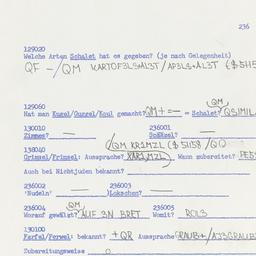 236
129020
Welche Arten Schalet hat es gegeben? (je nach Gelegenheit)
QF - / QM KARTOF3LS+AL3T / AP3LS+AL3T ($5H5
129060
Hat man Kugel/Gunzel/Koul gemacht? QM + = — = Schalet? QSIMIL
QM
130010 236001
Zimmes? — Schänzel? —
/QM KR1MZL ($5H5) / QQ
138040
Grimsel/Frimsel: Aussprache? XAR1MZL Wann zubereitet? PES
Auch bei Nichtjuden bekannt?
236002 236003
"Nudeln" — Lokschen? —
236004 QM 236005
Worauf gewälgt? AUF 3N BRET Womit? ROL3
130100
Farfel/Ferwel: bekannt? + QR Aussprache GRAUB+ / AJ3GRAUB
Zubereitungsweise